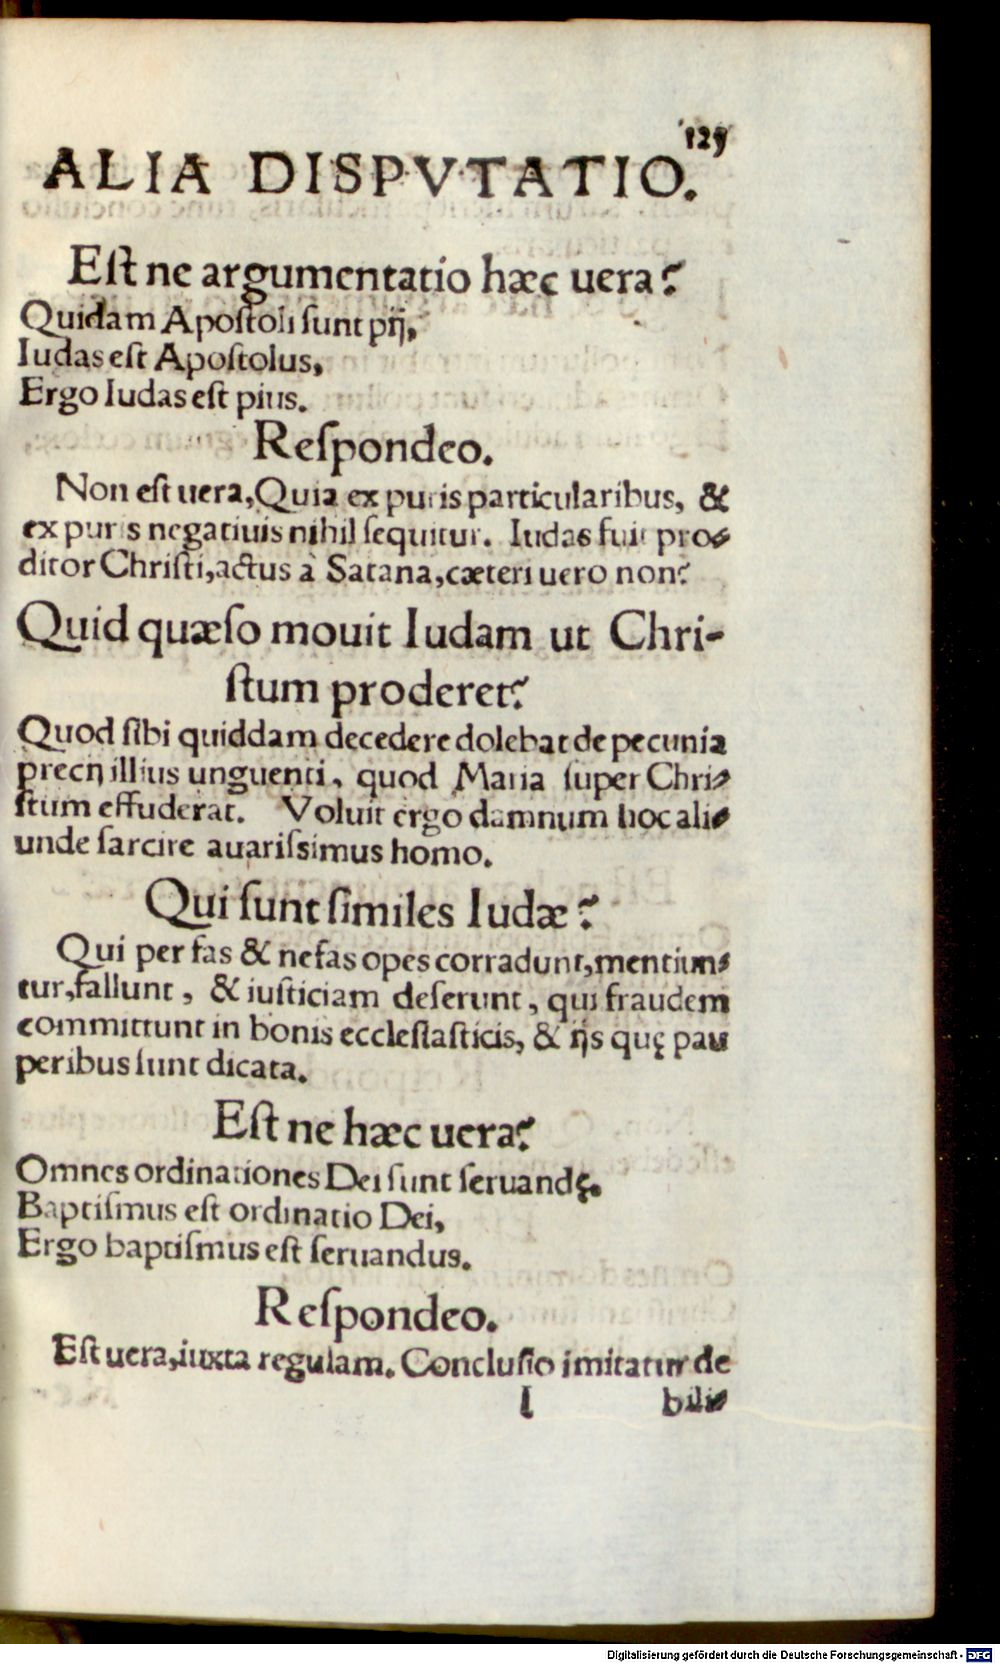 129
ALIA DISPVTATIO.
Eſt ne argumentatio hæc uera?
Quidam Apoſtoli ſunt pij,
Iudas eſt Apoſtolus,
Ergo Iudas eſt pius.
Reſpondeo.
Non eſt uera, Quia ex puris particularibus, &
ex puris negatiuis nihil ſequitur. Iudas fuit pro⸗
ditor Chriſti, actus à Satana, cæteri uero non?
Quid quæſo mouit Iudam ut Chri-
ſtum proderet?
Quod ſibi quiddam decedere dolebat de pecunia
precij illius unguenti, quod Maria ſuper Chri⸗
ſtum effuderat. Voluit ergo damnum hoc ali⸗
unde ſarcire auariſsimus homo.
Qui ſunt ſimiles Iudæ?
Qui per fas & nefas opes corradunt, mentiun⸗
tur, fallunt, & iuſticiam deſerunt, qui fraudem
committunt in bonis eccleſiaſticis, & ijs quę pau
peribus ſunt dicata.
Eſt ne hæc uera?
Omnes ordinationes Dei ſunt ſeruandę.
Baptiſmus eſt ordinatio Dei,
Ergo baptiſmus eſt ſeruandus.
Reſpondeo.
Eſt uera, iuxta regulam. Concluſio imitatur de
I bili⸗
Digitalisierung gefördert durch die Deutsche Forschungsgemeinschaft - DFG